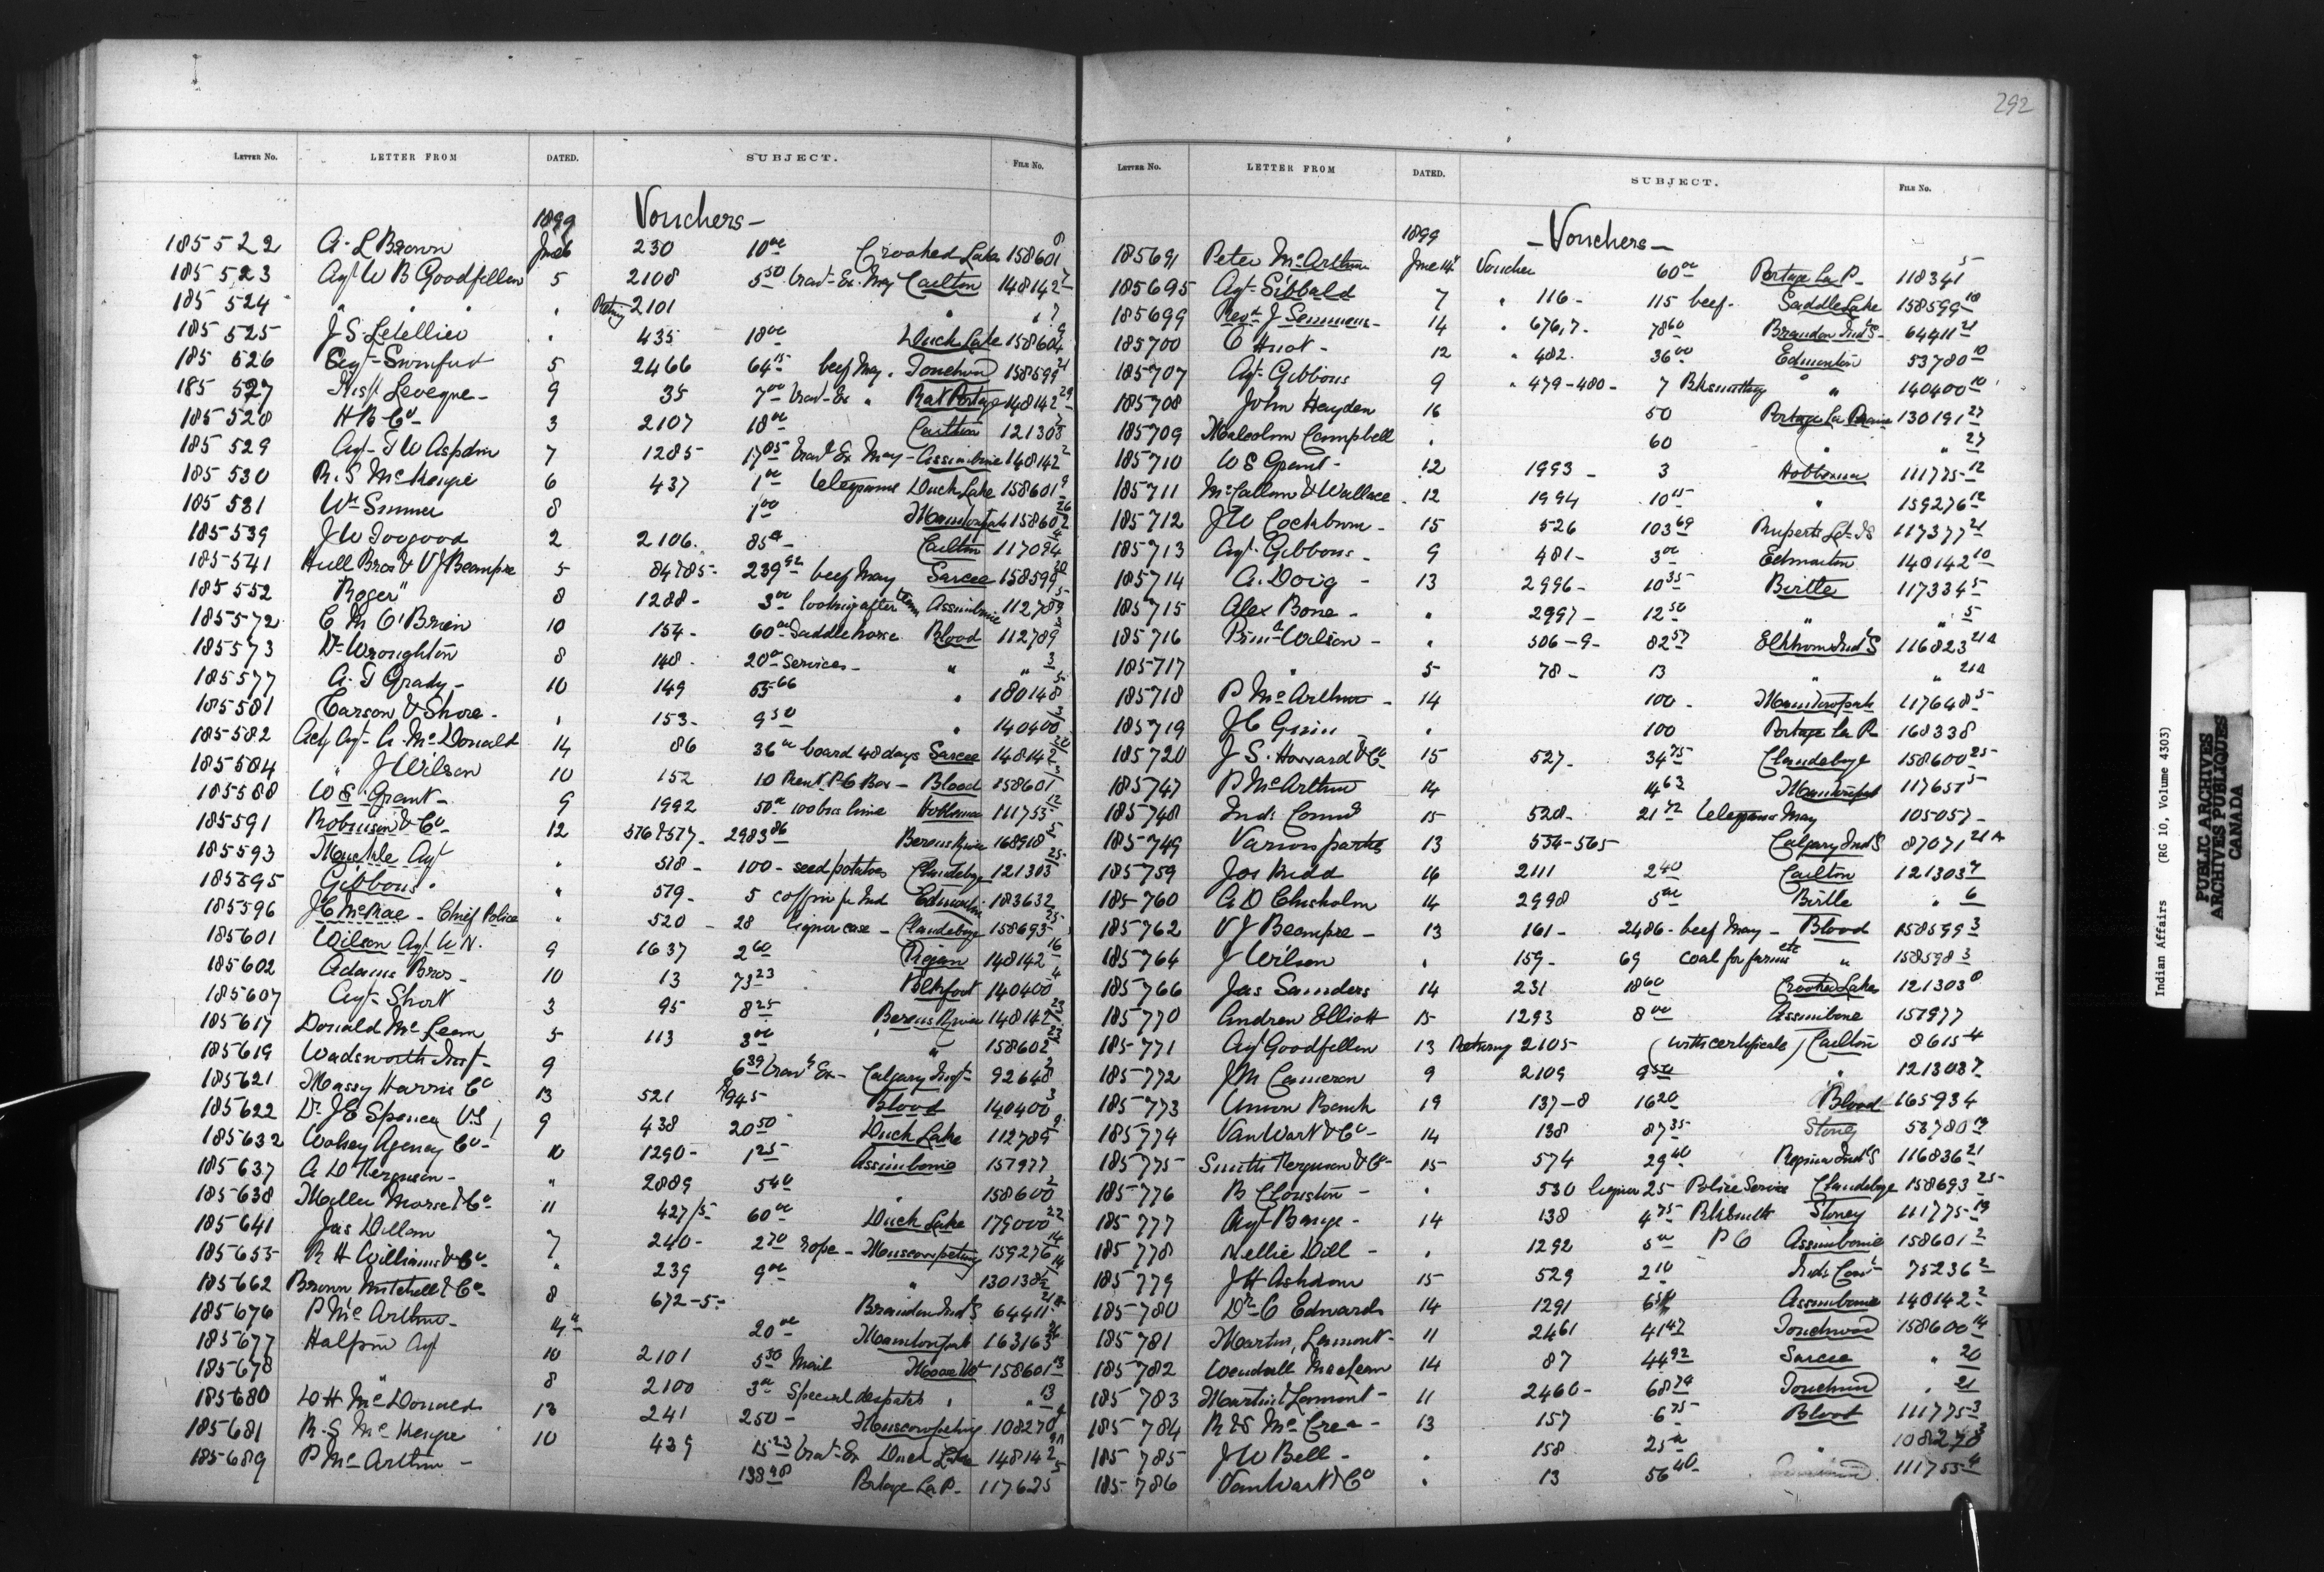 292
LETTER No. LETTER FROM DATED. SUBJECT. FILE No.
1899 Vouchers -
185522 A. L Brown June 6 230 10 00 Crooked Lake 158601 8
185523 Agt W B Goodfellow 5 2108 5 50 Trav- Ex. May Carlton 148142 7
185524 " " " " 2101 " " 7
185525 J S. Letellier " 435 18 00 Duck Lake 158604 9
185526 Agt- Swinford 5 2466 64 15 beef May. Touchwd 158599 21
185527 Insp. Leveque - 9 35 7 00 Trav- Ex " Rat Portage 148142 29
185528 H B Co - 3 2107 18 00 Carlton 121303 7
185529 Agt- T W Aspdin 7 1285 17 05 Trav Ex May - Assiniboine 148142 2
185530 R. S McKenzie 6 437 1 00 telegrams Duck Lake 158601 9
185531 Wm Simmer 8 1 00 158602 26
185539 J W Toogood 2 2106. 85 00 - Carlton 117094 4
185541 Hull Bros & V J Beaupre 5 84785- 239 92 beef May Sarcee 158599 20
185552 "Roger" 8 1288 - 3 00 looking after team Assiniboine 112789 5
185572 C M O'Brien 10 154 - 60 00 Saddle horse Blood 112789 3
185573 Dr Wroughton 8 148 - 20 00 Services - " " 3
185577 A. T Grady - 10 149 65 66 " 180148 5
185581 Carson & Shore - " 153 - 9 50 " 140400 3
185582 Actg Agt- A. McDonald 14 86 36 00 board 48 days Sarcee 148142 20
185584 " J Wilson 10 152 10 Rent. P.O Box - Blood 158601 3
185588 W S. Grant - 9 1992 50 00 100 brs lime Hobbema 111755 12
185591 Robinson & Co - 12 516 & 517 - 2983 86 Berens River 168918 5
185593 Agt " 518 - 100 - seed potatoes Clandeboye 121303 25
185595 Gibbons. " 519 - 5 coffin for Ind Edmonton 183632
185596 J C McRae - Chief Police " 520 - 28 liquor case - Clandeboye 158693 25
185601 Wilson Agt. R N. 9 1637 2 60 Piegan 148142 16
185602 Adams Bros - 10 13 73 23 Blkfoot 140400 4
185607 Agt- Short 3 95 8 25 Berens River 148142 23
185617 Donald McLean 5 113 3 00 " " 158602 23
185619 Wadsworth Insp - 9 6 39 Trav Ex - Calgary Insp - 92648 2
185621 Massy Harris Co 13 521 1945 Blood 140400 3
185622 Dr. J E Spence V.S. 9 438 20 50 Duck Lake 112789 9
185632 Wolsey Agency Co - 10 1290 - 1 25 Assiniboine 157977
185637 A D Ferguson - " 2889 5 40 " 158600 2
185638 Miller Morse & Co 11 427/5 - 60 00 Duck Lake 179000 22
185641 Jas Dillon 7 240 - 2 70 rope - Muscowpetung 159276 14
185655 R H Williams & Co - " 239 9 00 " 130138 14
185662 Brown Mitchell & Co - 8 672-5 - Brandon Ind S 64411 21
185676 P McArthur - 14 20 00 163163 26
185677 Halpin Agt 10 2101 5 50 Mail Moose Mt 158601 13
185678 " 8 2100 3 00 Special despatch " " 13
185680 D H McDonald 13 241 250 - Muscowpetung 108270
185681 R. S McKenzie 10 439 15 23 Trav- Ex Duck Lake 148142
185689 P McArthur - 138 98 Portage La P - 117625 5
LETTER No. LETTER FROM DATED. SUBJECT. FILE No.
1899 - Vouchers -
185691 Peter McArthur June 14 Voucher 60 00 Portage La P - 118341 5
185695 Agt- Sibbald 7 " 116 - 115 beef - Saddle Lake 158599 18
185699 Revd J Semmens - 14 " 676,7 - 78 60 Brandon Ind S - 64411 21
185700 C Huot - 12 " 482. 36 00 Edmonton 53780 10
185707 Agt- Gibbons 9 " 479-480 - 7 Blksmithing " 140400 10
185708 John Hayden 16 50 Portage La Prairie 130191 27
185709 Malcolm Campbell " 60 " " 27
185710 W S Grant - 12 1993 - 3 Hobbema 111775 12
185711 McCallum & Wallace - 12 1994 10 15 " 159276 12
185712 J W Cockburn - 15 526 103 69 Ruperts Ld IS 117377 21
185713 Agt- Gibbons - 9 481 - 3 00 Edmonton 148142 10
185714 A. Doig - 13 2996 - 10 35 Birtle 117334 5
185715 Alex Bone - " 2997 - 12 50 " " 5
185716 Prin Wilson - " 506-9 - 82 57 Elkhorn Ind S 116823 21A
185717 " 5 78 - 13 " " 21A
185718 P McArthur - 14 100 - 117648 5
185719 J C - " 100 Portage La P 168338
185720 J S. Howard & Co 15 527 - 34 75 Clandeboye 158600 25
185747 P McArthur 14 4 63 117657 5
185748 Ind: Commr 15 528 - 21 72 telegrams May 105057 -
185749 Various parties 13 554-565 Calgary Ind S 87071 21A
185759 Jos Kidd 16 2111 2 40 Carlton 121303 7
185760 A. D Chisholm 14 2998 5 00 Birtle " 6
185762 V J Beaupre - 13 161 - 2486 - beef May - Blood 158599 3
185764 J Wilson " 159 - 69 coal for farms etc " 158598 3
185766 Jas Saunders 14 231 18 60 Crooked Lakes 121303 8
185770 Andrew Elliott 15 1293 8 00 Assiniboine 157977
185771 Agt Goodfellow 13 Returng 2105 - (with certificate) Carlton 8615 4
185772 J M Cameron 9 2109 9 50 " 121303 7
185773 Union Bank 19 137-8 16 20 Blood 165934
185774 Van Wart & Co - 14 138 87 35 - Stoney 53780 19
185775 Smith Ferguson & Co - 15 574 29 40 Regina Ind S 116836 21
185776 R Clouston - " 530 liquor 25 Police Service Clandeboye 158693 25
185777 Agt- Bangs - 14 138 4 75 Blksmith Stoney 111775 19
185778 Nellie Dill - " 1292 5 00 P O Assiniboine 158601 2
185779 J H Ashdown 15 529 2 10 Inds Comr 75236 2
185780 Dr C Edwards 14 1291 6 50 Assiniboine 148142 2
185781 Martin, Lamont - 11 2461 41 47 Touchwood 158600 14
185782 Wendall MacLean 14 87 44 92 Sarcee " 20
185783 Martin & Lamont - 11 2460 - 68 79 Touchwd " 21
185784 R S McCrea - 13 157 6 75 Blood 111775 3
185785 J W Bell - " 158 25 00 " 108270 3
185786 Van Wart & Co " 13 56 40 111755 4
Indian Affairs (RG 10, Volume 4303)
PUBLIC ARCHIVES
ARCHIVES PUBLIQUES
CANADA